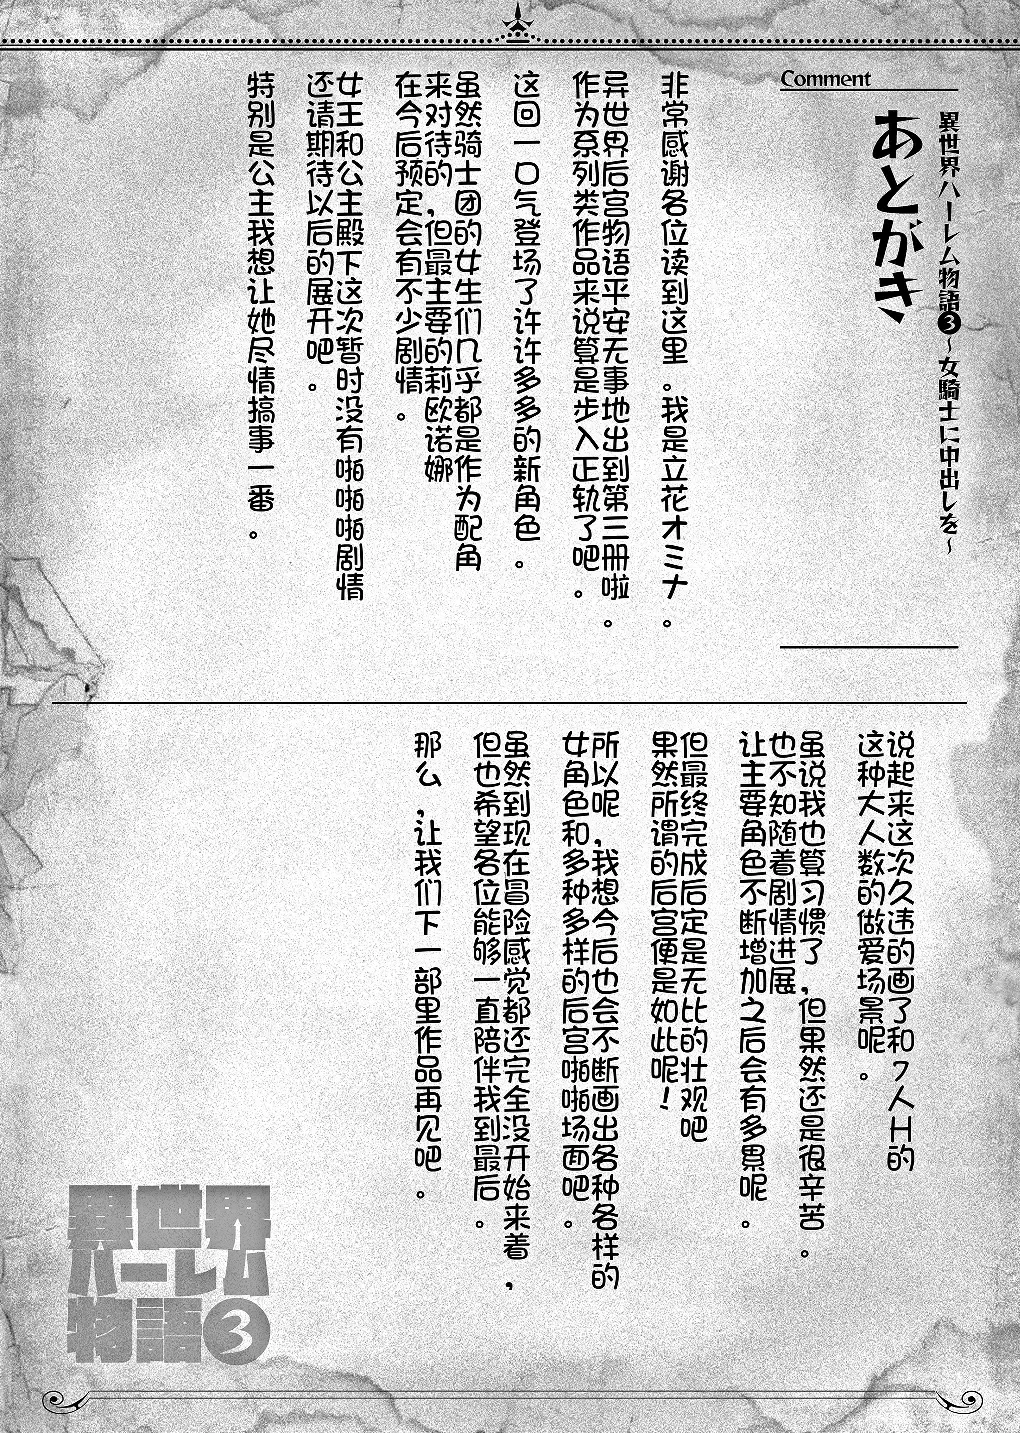 Comment
異世界ハーレム物語❸～女騎士に中出しを～
あとがき
非常感谢各位读到这里。我是立花オミナ。
异世界后宫物语平安无事地出到第三册啦。
作为系列类作品来说算是步入正轨了吧。
这回一口气登场了许许多多的新角色。
虽然骑士团的女生们几乎都是作为配角
来对待的，但最主要的莉欧诺娜
在今后预定会有不少剧情。
女王和公主殿下这次暂时没有啪啪啪剧情
还请期待以后的展开吧。
特别是公主我想让她尽情搞事一番。
说起来这次久违的画了和7人H的
这种大人数的做爱场景呢。
虽说我也算习惯了，但果然还是很辛苦。
也不知随着剧情进展
让主要角色不断增加之后会有多累呢。
但最终完成后定是无比的壮观吧
果然所谓的后宫便是如此呢！
所以呢，我想今后也会不断画出各种各样的
女角色和多种多样的后宫啪啪场面吧。
虽然到现在冒险感觉都还完全没开始来着，
但也希望各位能够一直陪伴我到最后。
那么，让我们下一部里作品再见吧。
異世界
ハーレム
物語❸